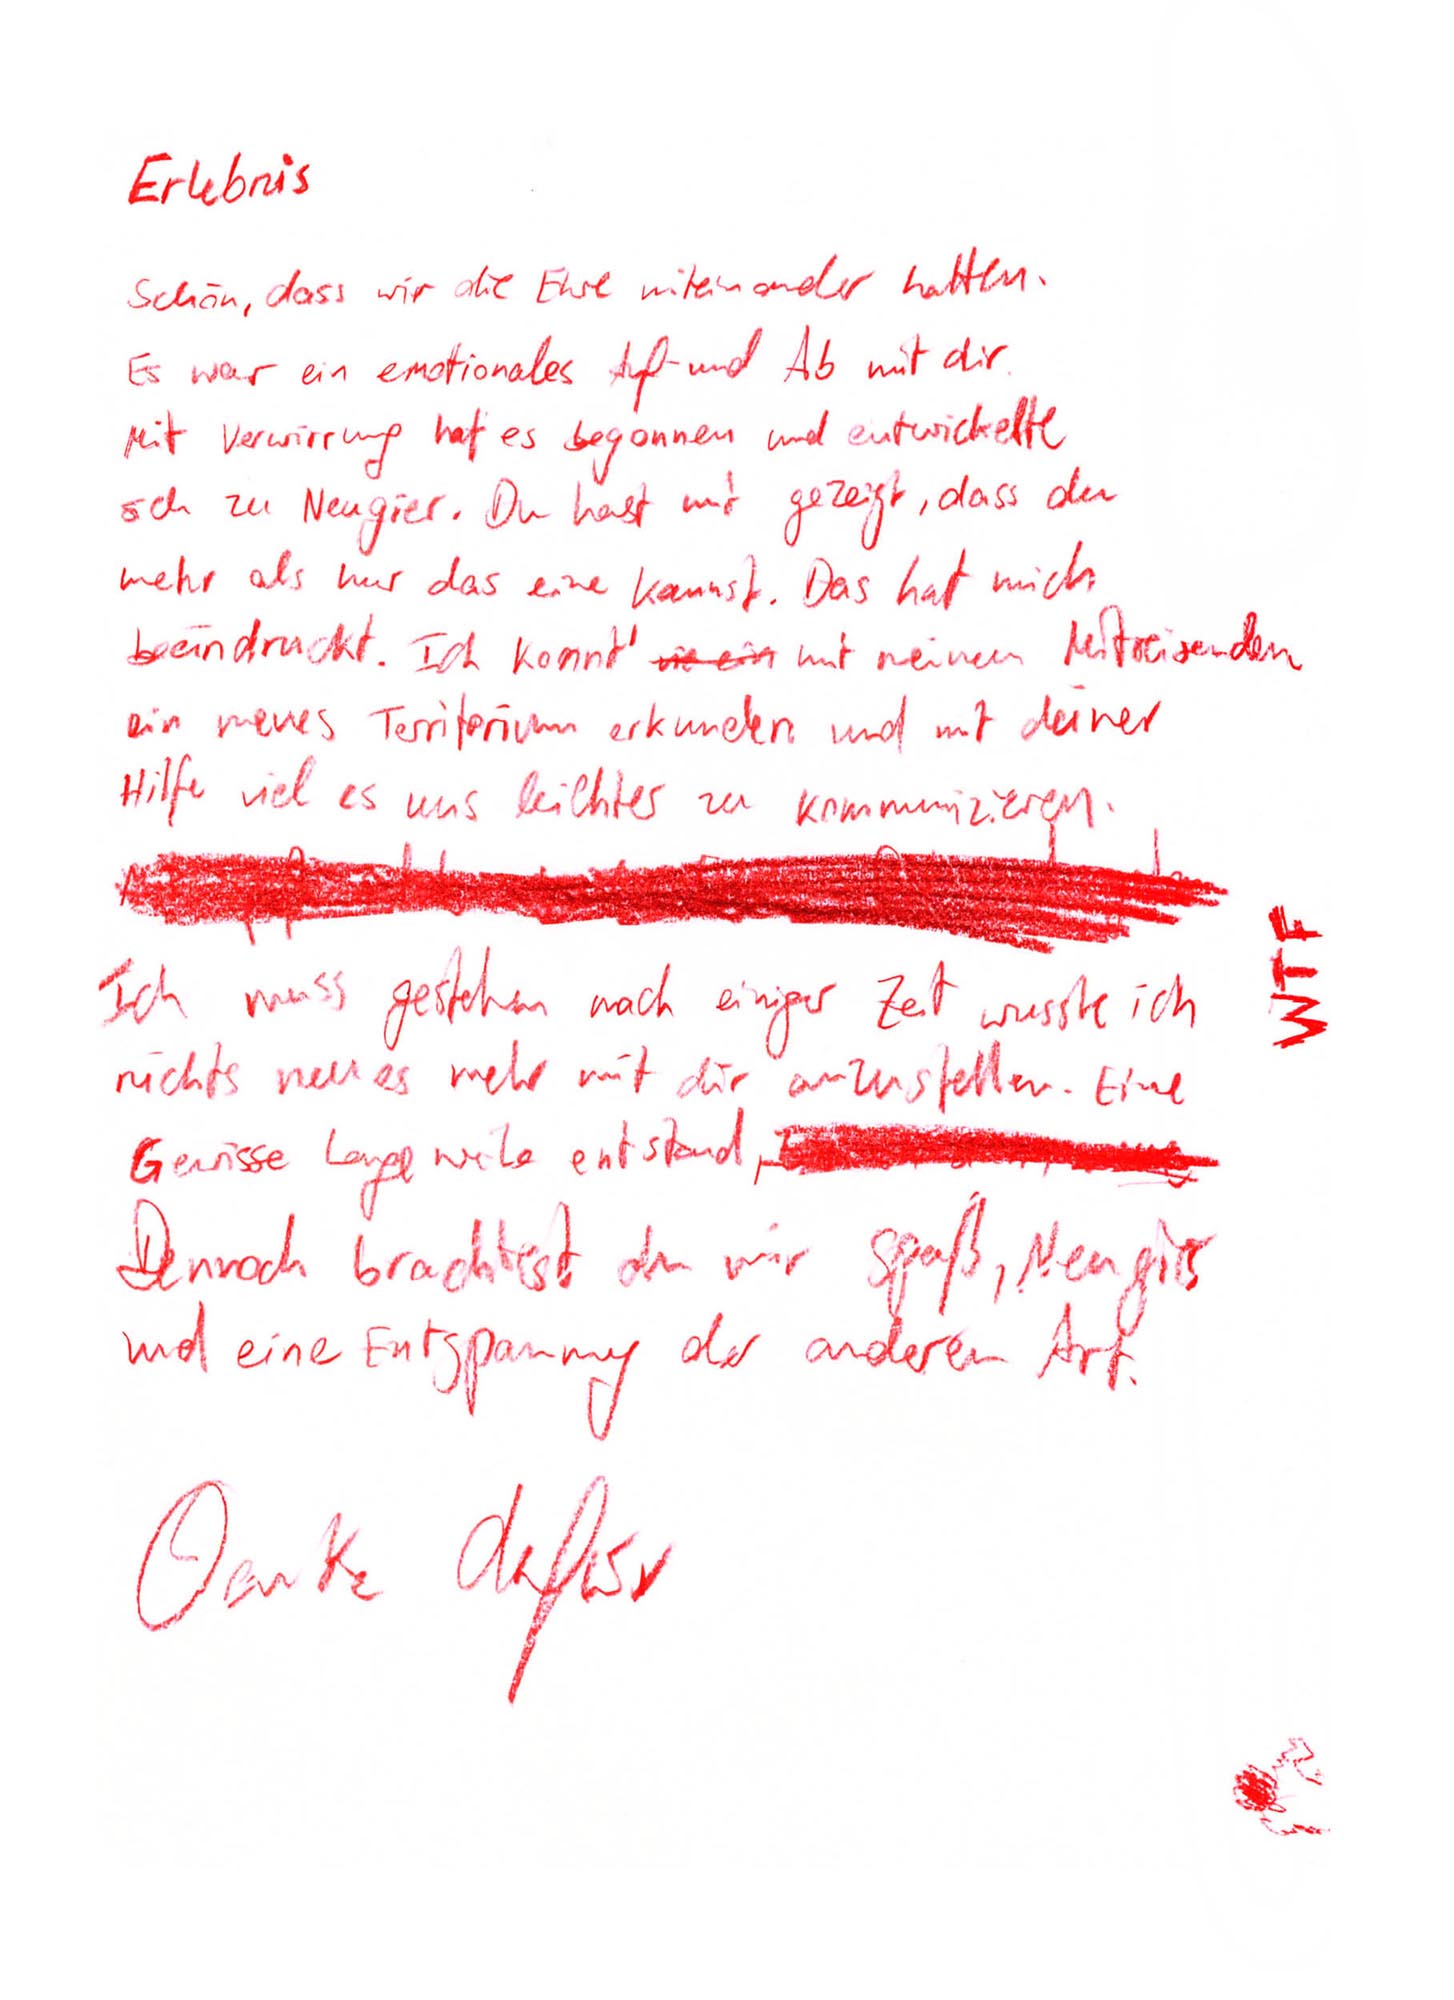 Erlebnis
Schön, dass wir die Ehre miteinander hatten.
Es war ein emotionales Auf- und Ab mit dir.
Mit Verwirrung hat es begonnen und entwickelte
sich zu Neugier. Du hast mir gezeigt, dass du
mehr als nur das eine kannst. Das hat mich
beeindruckt. Ich konnt' mit meinem Mitreisenden
ein neues Territorium erkunden und mit deiner
Hilfe viel es uns leichter zu kommunizieren.
Ich muss gestehen nach einiger Zeit wusste ich
nichts neues mehr mit dir anzustellen. Eine
Gewisse Langeweile entstand,
Dennoch brachtest du mir Spaß, Neugier
und eine Entspannung der anderen Art.
Danke dafür
WTF